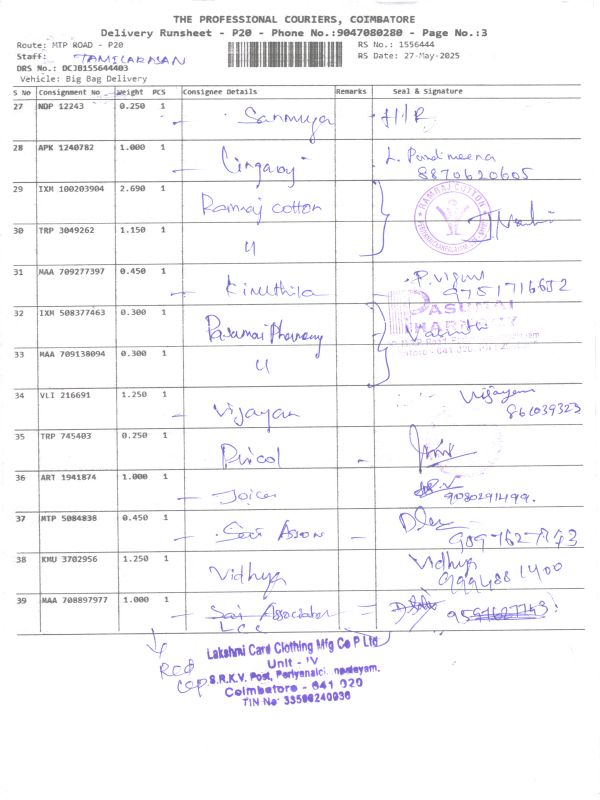 THE PROFESSIONAL COURIERS, COIMBATORE
Delivery Runsheet - P20 - Phone No.:9047080280 - Page No.:3
Route: MTP ROAD - P20
RS No.: 1556444
Staff: TAMILARASAN
RS Date: 27-May-2025
DRS No.: DCJB155644403
Vehicle: Big Bag Delivery
S No Consignment No Weight PCS Consignee Details Remarks Seal & Signature
27 NDP 12243 0.250 1 Sanmuga
28 APK 1240782 1.000 1 Lingaraj L. Pandimeena
8870620605
29 IXM 100203904 2.690 1 Ramraj cotton RAMRAJ COTTON
30 TRP 3049262 1.150 1 "
31 MAA 709277397 0.450 1 Kiruthika
32 IXM 508377463 0.300 1 Pasumai Pharmacy PASUMAI
PHARMACY
33 MAA 709138094 0.300 1 "
34 VLI 216691 1.250 1 Vijayan Vijayan
35 TRP 745403 0.250 1 Pricol
36 ART 1941874 1.000 1 Joice
9080291499.
37 MTP 5084838 0.450 1 Sai Asson
38 KMU 3702956 1.250 1 Vidhya Vidhya
9994881400
39 MAA 708897977 1.000 1 Sai Associator
LCC
Rcd
Lakshmi Card Clothing Mfg Co P Ltd
Unit - IV
S.R.K.V. Post, Periyanaickenpalayam.
Coimbatore - 641 020
TIN No: 33596240936